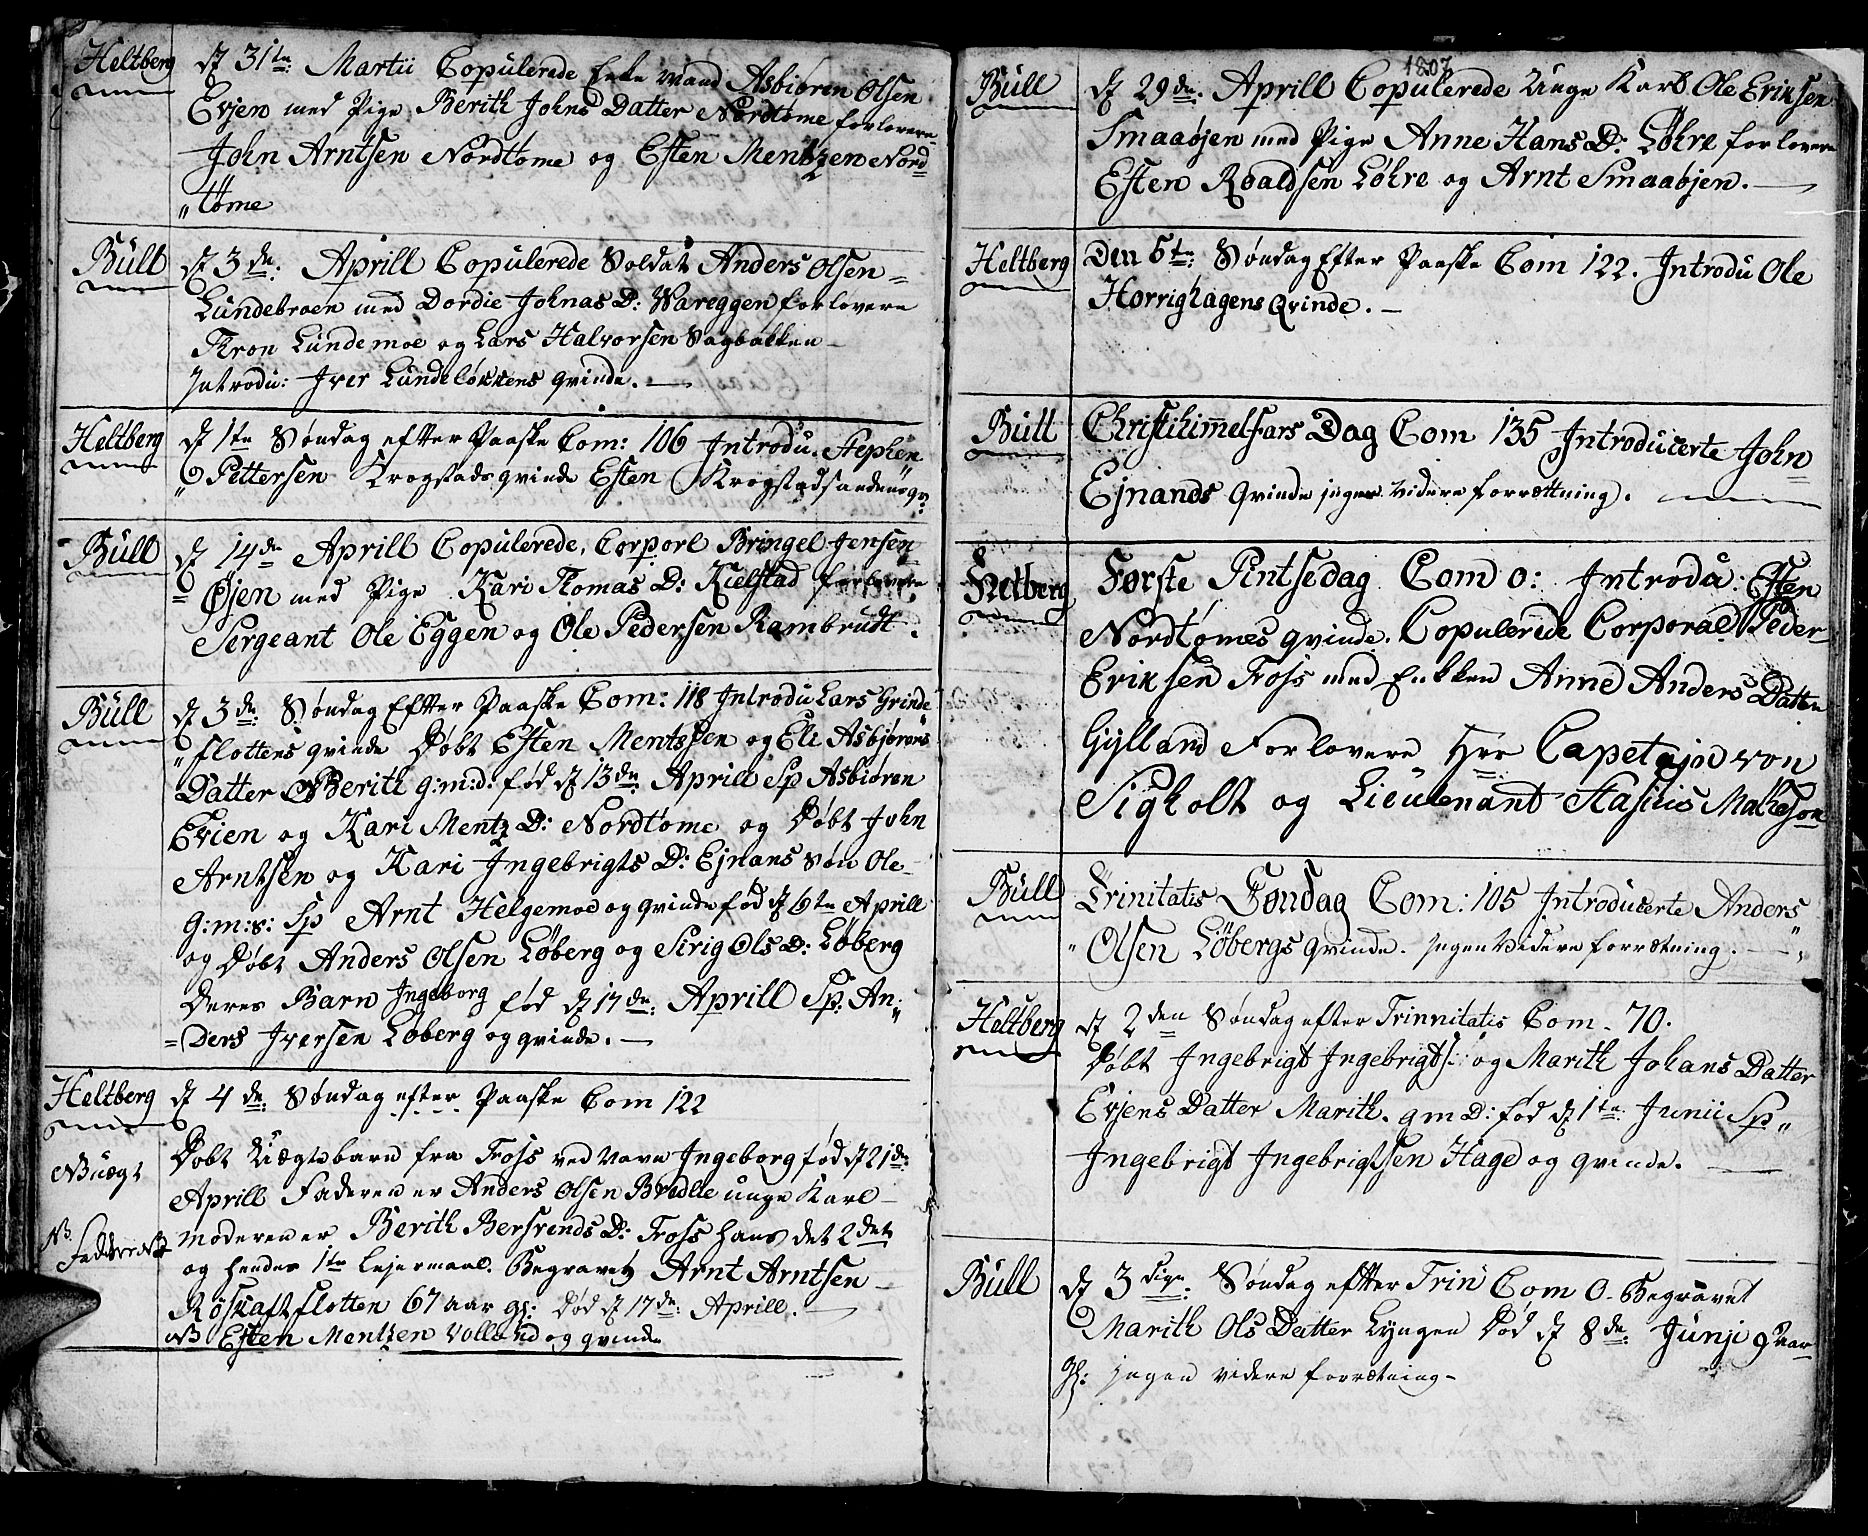 Heltberg
d 31te: Martii Copulerede Enke Mand Asbiören Olsen
Evjen med Pige Berith Johns Datter Nordtøme forlovere
John Arntsen Nordtøme og Esten Mentzen Nord
„tøme
Büll
d 3de: Aprill Copulerede Soldat Anders Olsen =
Lundebroen med Dordie Johnas D: Wareggen forlovere
Tron Lundemoe og Lars Halvorsen Sagbakken –
Introdu: Iver Lundeløkkens qvinde. —
Heltberg
d 1te Søndag efter Paaske Com: 106 Introdu. Stephen
„Pettersen Krogstads qvinde Esten Krogstadsandens qv:
Büll
d 14de Aprill Copulerede, Corporl Bringel Jensen
= Øjen med Pige Kari Tomas D: Kielstad forlovere
Sergeant Ole Eggen og Ole Pedersen Rambrudt.
Büll
d 3de: Søndag Efter Paaske Com: 118 Introdu Lars Grinde
„flottens qvinde Døbt Esten Mentssen og Eli Asbjørens
Datter Berith g:m:d: fød d 13de Aprill Sp Asbiören
Evien og Kari Mentz D: Nordtøme og Døbt John
Arntsen og Kari Ingebrigts D: Ejnans Søn Ole –
g:m:s: Sp Arnt Helgemoe og qvinde fød d 6te Aprill
og Døbt Anders Olsen Løberg og Sirig Ols D: Løberg
Deres Barn Ingeborg fød d 17de: Aprill Sp: An„
= Ders Iversen Løberg og qvinde. —
Heltberg
d 4de: Søndag efter Paaske Com 122
Døbt Uægtebarn fra Foss ved Navn Ingeborg fød d 21de:
Aprill Faderen er Anders Olsen Bradle unge Karl –
Moderen er Berith Bersvends D: Foss hans det 2det
og hendes 1te Lejermaal. Begravet Arnt Arntsen –
Røskaftflotten 67 Aar gl: Død d 17de: Aprill. —
NB Esten Mentzen Volland og qvinde
1807
Büll
d 29de: Aprill Copulerede Unge Karl Ole Eriksen
Smaaøjen med Pige Anne Hans D: Løhre forlovere
Esten Roaldsen Løhre og Arnt Smaaøjen. —
Heltberg
Den 5te: Søndag Efter Paaske Com 122. Introdu Ole
Horrighagens Qvinde. –
Büll
Christi himmelfars Dag Com 135 Introducerte John
Ejnands Qvinde ingen Videre forrettning. —
Heltberg
Første Pintsedag Com 0: Introdu: Esten
Nordtømes qvinde. Copulerede Corporal Peder
Eriksen Foss med Enkken Anne Anders Datter
Gylland Forlovere Hrr Capetajn von
Sigholt og Lieutenant Stasius Matheson
Büll
Trinitatis Søndag Com: 105 Introducerte Anders
„Olsen Løbergs qvinde. Ingen Videre forrætning. —
Heltberg
d 2den Søndag efter Trinnitatis Com. 70.
Døbt Ingebrigt Ingebrigts: og Marith Johans Datter
Evjens Datter Marith. g m D: fød d 1te: Junii Sp„
Ingebrigt Ingebrigtsen Hage og qvinde. —
Büll
d 3die: Søndag efter Trin Com 0 – Begravet
Marith Ols Datter Lyngen Død d 8de: Junji 9 Aar
gl: ingen videre forrætning –